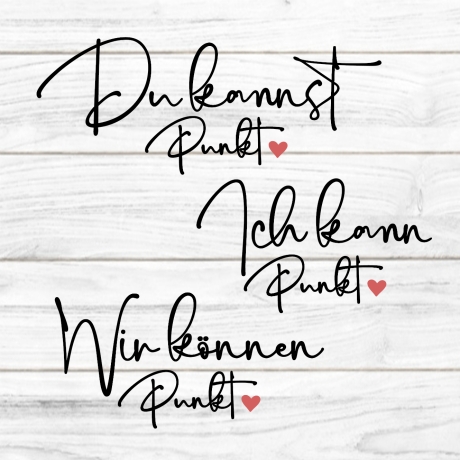 Du kannst
Punkt
Ich kann
Punkt
Wir können
Punkt